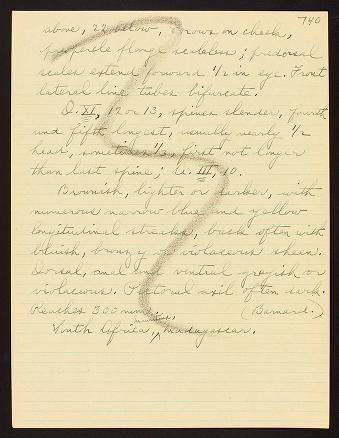 740
above, 22 below, 5 rows on cheek,
preopercle flange scaleless; predorsal
scales extend forward 1/2 in eye. Front
lateral line tubes bifurcate.
D. XI, 12 or 13, spines slender, fourth
and fifth longest, usually nearly 1/2
head, sometimes 1/3, first not longer
than last spine; A. III, 10.
Brownish, lighter or darker, with
numerous narrow blue and yellow
longitudinal streaks, back often with
bluish, bronzy or violaceous sheen.
Dorsal, anal and ventral greyish or
violaceous. Pectoral axil often dark.
Reaches 300 mm. (Barnard.)
South Africa, Mauritius, Madagascar.